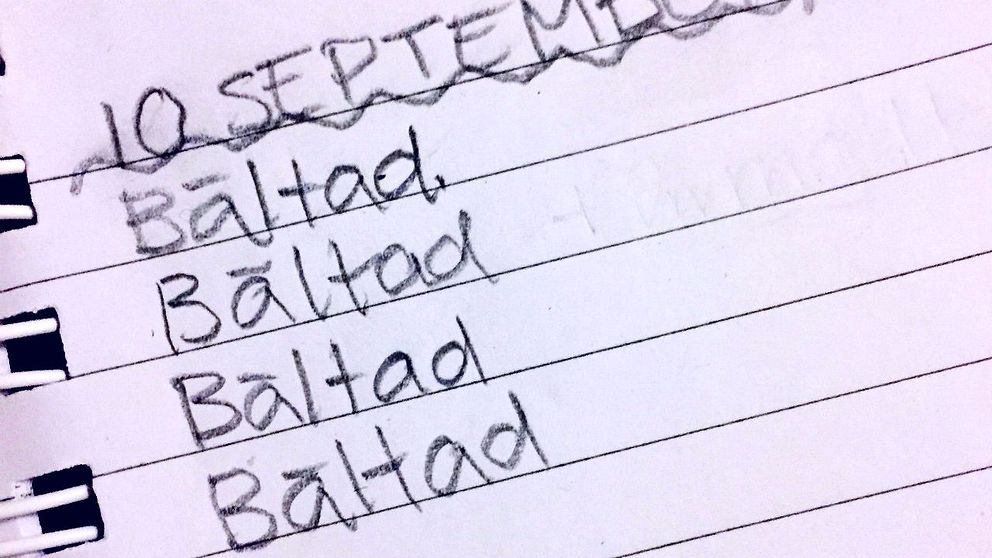 10 SEPTEMBER
Bältad.
Bältad
Bältad
Bältad